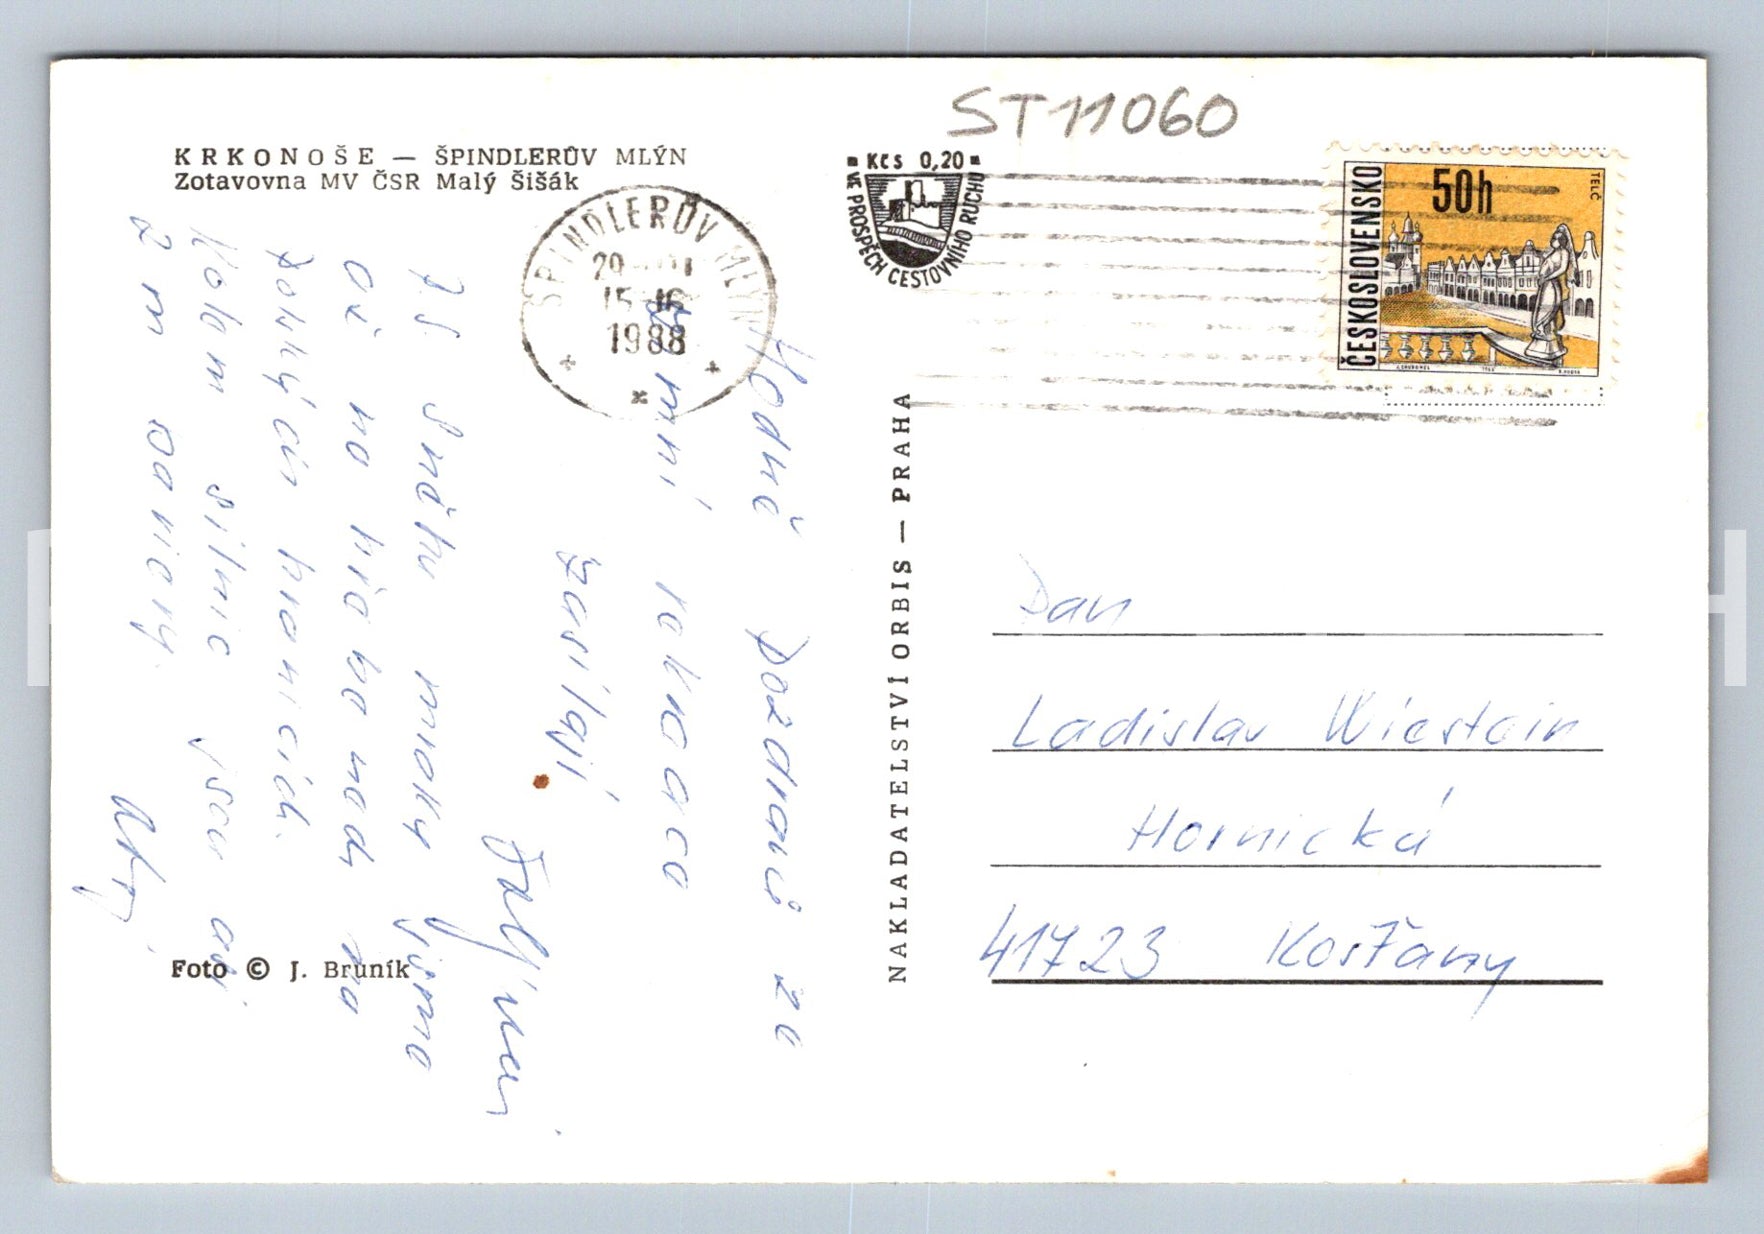 ST11060
KRKONOŠE — ŠPINDLERŮV MLÝN
Zotavovna MV ČSR Malý Šišák
ŠPINDLERŮV MLÝN
15-16
1988
Kčs 0,20
VE PROSPĚCH CESTOVNÍHO RUCHU
ČESKOSLOVENSKO
50h
TELČ
Hodně pozdravů ze
zimní rekreace
zasílají
J.S. Sněhu mraky jsme
až na hřebenech na
polských hranicích.
Kolem silnic jsou asi
2 m bariery.
Foto © J. Bruník
NAKLADATELSTVÍ ORBIS — PRAHA
Pan
Ladislav Wiestein
Hornická
41723 Košťany